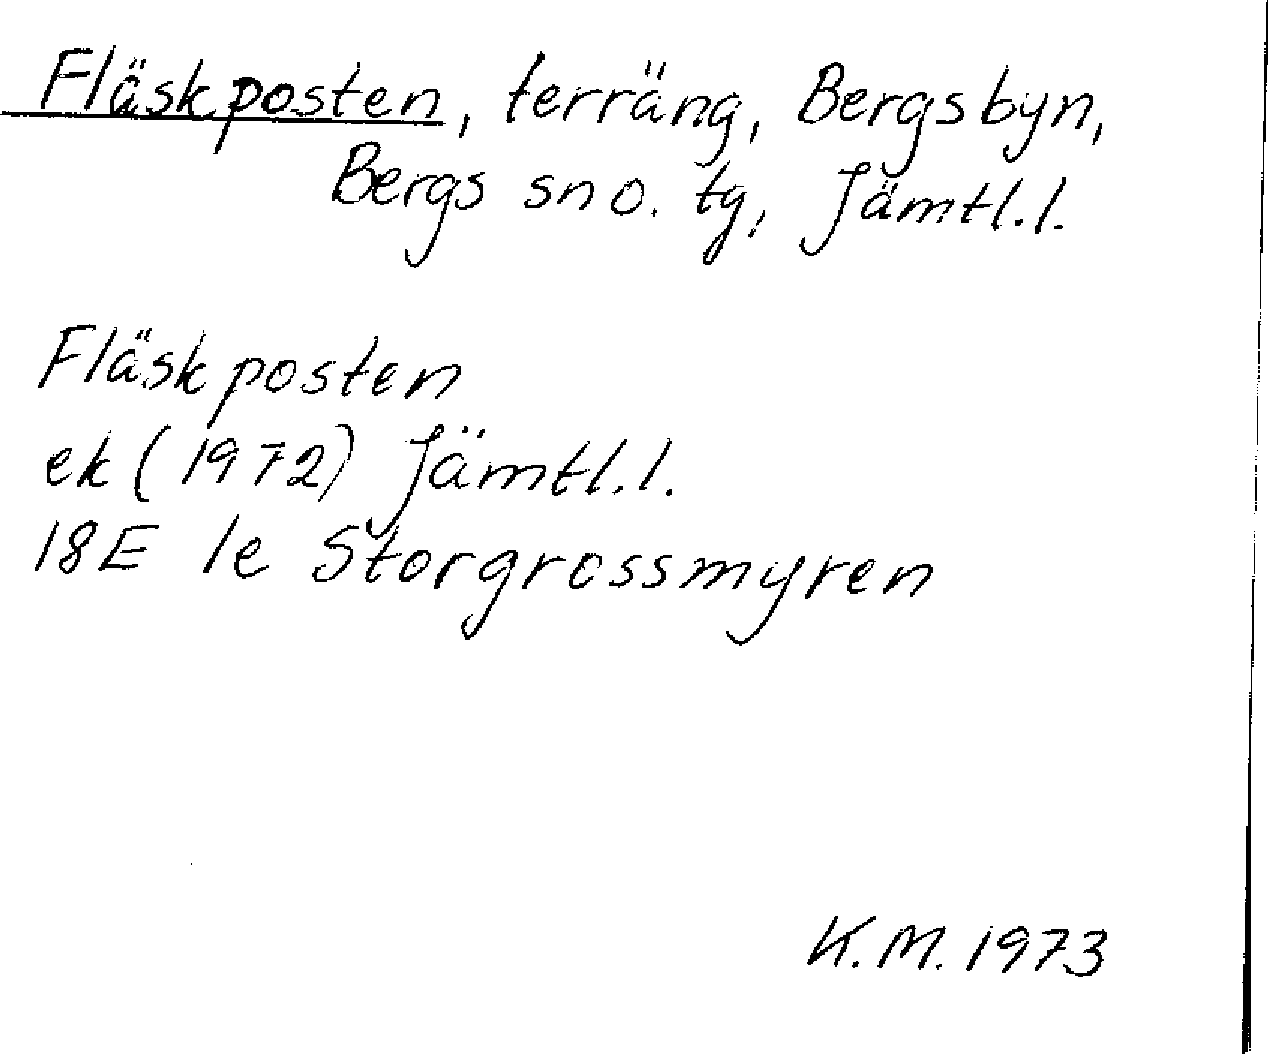 Fläskposten, terräng, Bergsbyn,
Bergs sn o. tg, Jämtl.l.
Fläskposten
ek (1972) Jämtl.l.
18E 1e Storgrossmyren
K.M. 1973